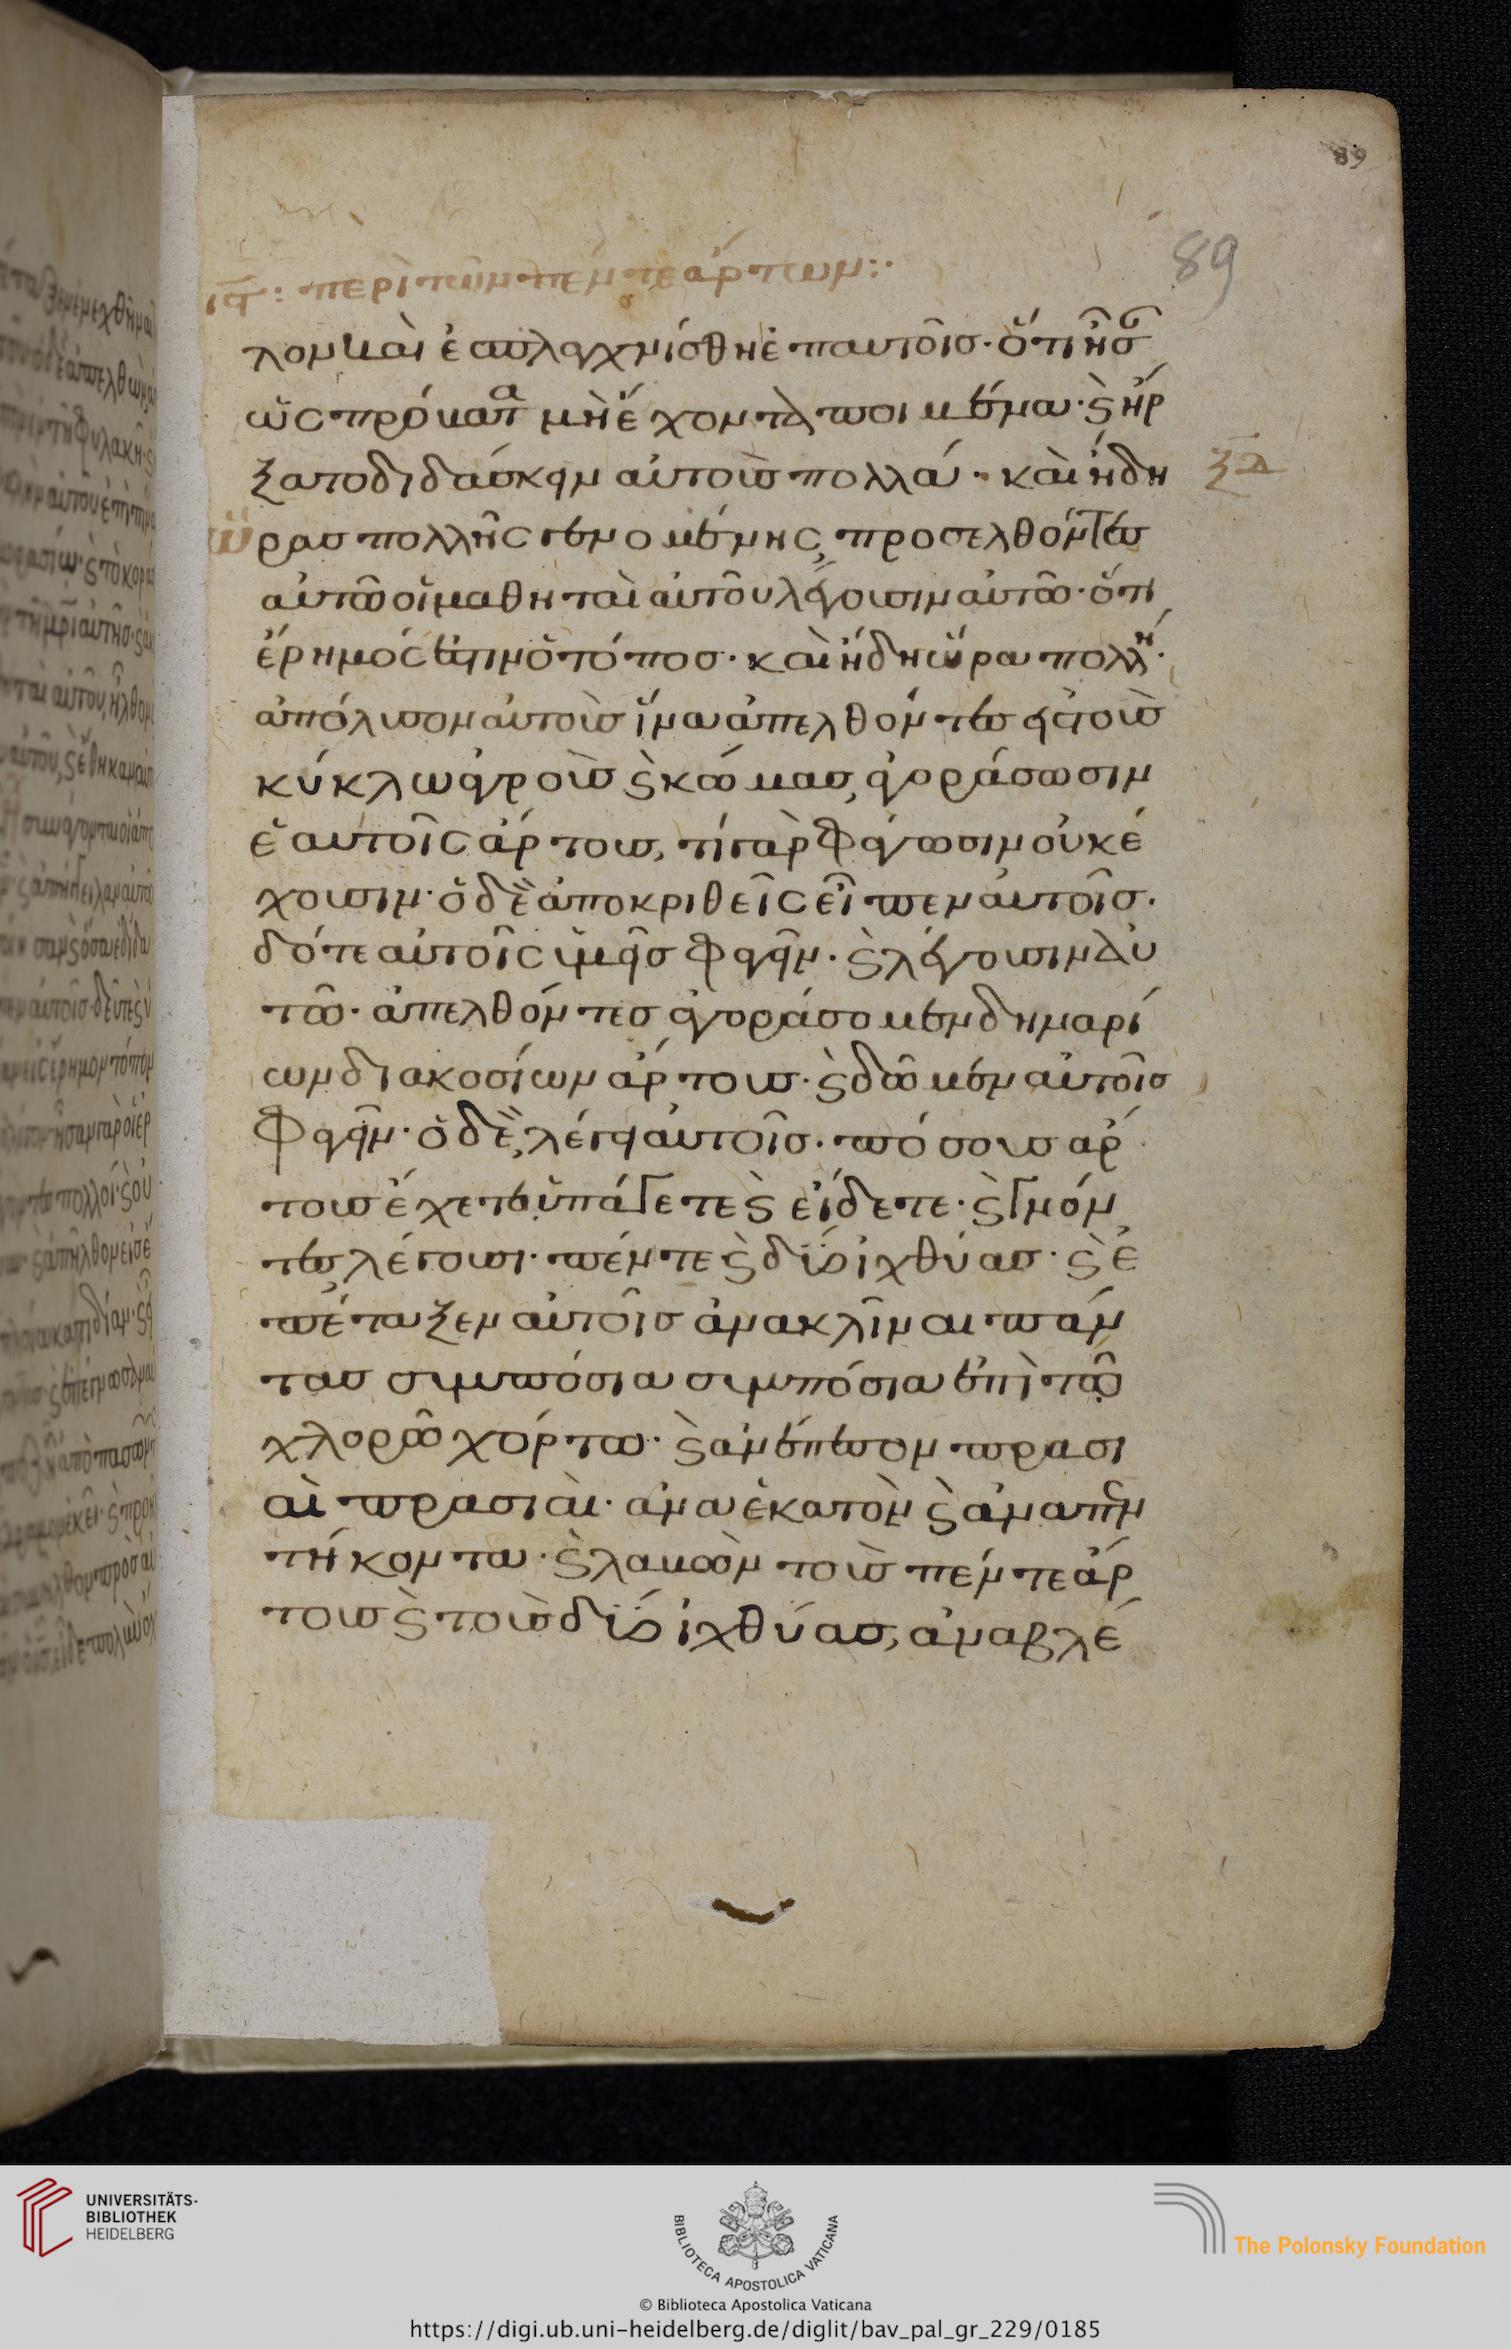 89
89
ιϛ: περὶ τῶν πέντε ἄρτων:·
λον καὶ ἐσπλαγχνίσθη ἐπ αυτοῖς· ὅτι ἦσ
ὡς πρόβατ μὴ ἔχοντα ποιμένα· ϗ ἤρ
ξατο διδάσκειν αὐτοὺς πολλά· καὶ ἤδη
ξδ
ὥρας πολλῆς γενομένης, προσελθόντες
αὐτῶ οἱ μαθηταὶ αὐτοῦ λέγουσιν αυτῶ· ὅτι
ἔρημός ἐστιν ὁ τόπος· καὶ ἤδη ὥρα πολλή·
ἀπόλυσον αυτοὺς ἵνα ἀπελθόντες εἰς τοὺς
κύκλω ἀγροὺς ϗ κώμας, ἀγοράσωσιν
ἑαυτοῖς ἄρτους, τί γὰρ φάγωσιν οὐκ έ
χουσιν· ὁ δὲ ἀποκριθεὶς εἶπεν αυτοῖς·
δότε αὐτοῖς ὑμεῖς φαγεῖν· ϗ λέγουσιν αὐ
τῶ· ἀπελθόντες ἀγοράσομεν δηναρί
ων διακοσίων ἄρτους· ϗ δῶμεν αὐτοῖς
φαγεῖν· ὁ δὲ, λέγει αυτοῖς· πόσους ἄρ
τους έχετε ὑπάγετε ϗ εἴδετε· ϗ γνόν
τες λέγουσι· πέντε ϗ δύο ἰχθύας· ϗ ἐ
πέταξεν αὐτοῖς ἀνακλῖναι πάν
τας συμπόσια συμπόσια ἐπὶ τῶ
χλορῶ χόρτω· ϗ ἀνέπεσον πρασι
αὶ πρασιαὶ· ἀνα ἑκατὸν ϗ ἀνα πεν
τήκοντα· ϗ λαβὼν τοὺς πέντε ἄρ
τους ϗ τοὺς δύο ἰχθύας, ἀναβλέ
UNIVERSITÄTS-
BIBLIOTHEK
HEIDELBERG
BIBLIOTECA APOSTOLICA VATICANA
The Polonsky Foundation
© Biblioteca Apostolica Vaticana
https://digi.ub.uni-heidelberg.de/diglit/bav_pal_gr_229/0185